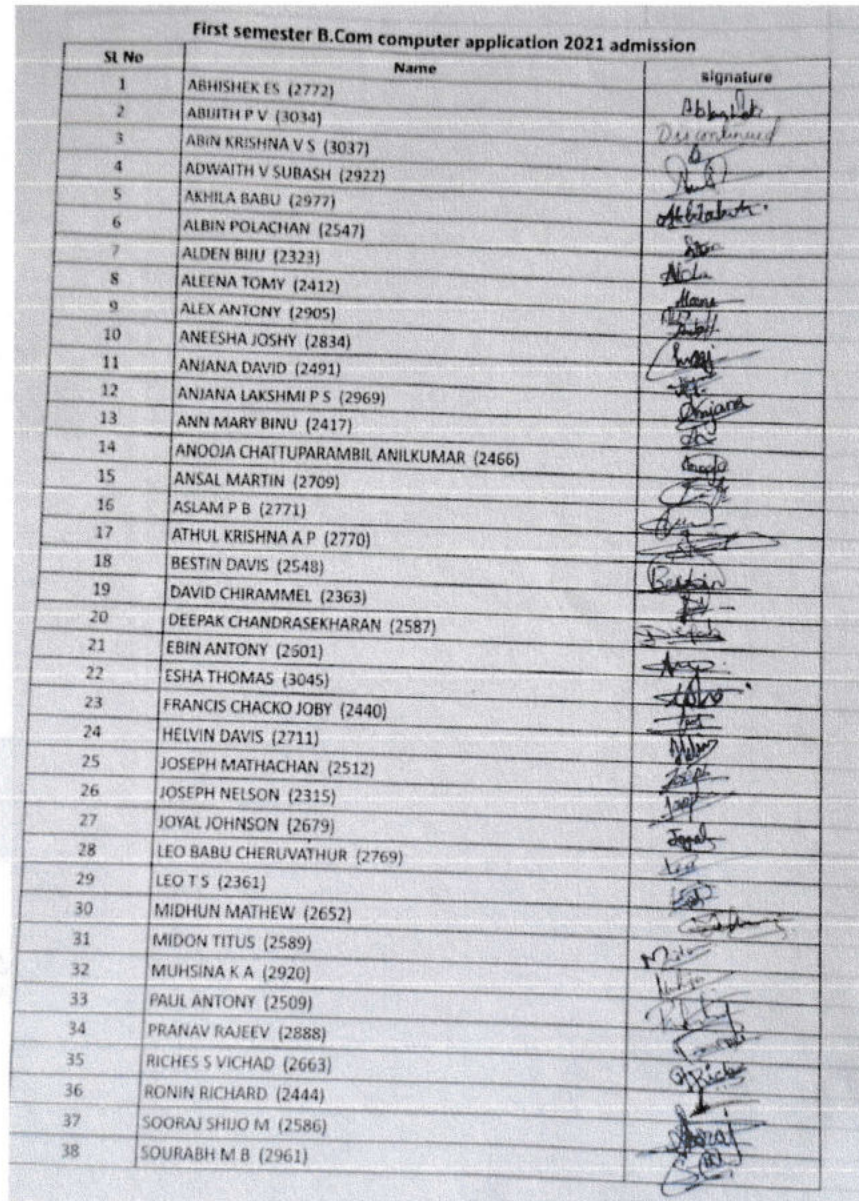 First semester B.Com computer application 2021 admission
SL No Name signature
1 ABHISHEK ES (2772)
2 ABIJITH P V (3034) Discontinued
3 ABIN KRISHNA V S (3037)
4 ADWAITH V SUBASH (2922)
5 AKHILA BABU (2977)
6 ALBIN POLACHAN (2547)
7 ALDEN BIJU (2323)
8 ALEENA TOMY (2412)
9 ALEX ANTONY (2905)
10 ANEESHA JOSHY (2834)
11 ANJANA DAVID (2491)
12 ANJANA LAKSHMI P S (2969) Anjana
13 ANN MARY BINU (2417)
14 ANOOJA CHATTUPARAMBIL ANILKUMAR (2466) Anooja
15 ANSAL MARTIN (2709)
16 ASLAM P B (2771)
17 ATHUL KRISHNA A P (2770)
18 BESTIN DAVIS (2548) Bestin
19 DAVID CHIRAMMEL (2363)
20 DEEPAK CHANDRASEKHARAN (2587) Deepak
21 EBIN ANTONY (2601)
22 ESHA THOMAS (3045)
23 FRANCIS CHACKO JOBY (2440)
24 HELVIN DAVIS (2711)
25 JOSEPH MATHACHAN (2512) Joseph
26 JOSEPH NELSON (2315)
27 JOYAL JOHNSON (2679) Joyal
28 LEO BABU CHERUVATHUR (2769)
29 LEO T S (2361)
30 MIDHUN MATHEW (2652)
31 MIDON TITUS (2589)
32 MUHSINA K A (2920)
33 PAUL ANTONY (2509)
34 PRANAV RAJEEV (2888)
35 RICHES S VICHAD (2663)
36 RONIN RICHARD (2444)
37 SOORAJ SHIJO M (2586) Sooraj
38 SOURABH M B (2961)